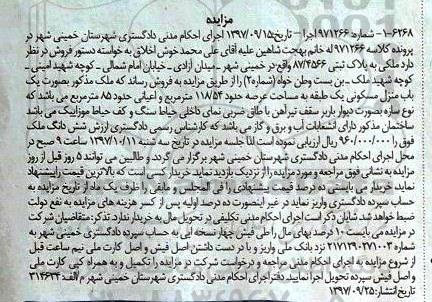 مزایده
۱-۶۲۶۸- شماره ۹۷۱۲۶۶ اجرا - تاریخ ۱۳۹۷/۰۹/۱۵ اجرای احکام مدنی دادگستری شهرستان خمینی شهر در
پرونده کلاسه ۹۷۱۲۶۶ له خانم بهجت شاهین علیه آقای علی محمد خوش اخلاق به خواسته دستور فروش در نظر
دارد ملکی به پلاک ثبتی ۸۷/۴۵۶۶ واقع در خمینی شهر - میدان آزادی - خیابان امام شمالی - کوچه شهید امینی -
کوچه شهید ملک - بن بست وطن خواه (شماره ۲) را از طریق مزایده به فروش رساند که ملک مذکور بصورت یک
باب منزل مسکونی یک طبقه به مساحت عرصه حدود ۱۱۸/۵۴ مترمربع و اعیانی حدود ۸۵ مترمربع می باشد که
نوع سازه بصورت دیوار باربر سقف تیرآهن با طاق ضربی نمای داخلی خیاط سنگ و کف حیاط موزاییک می باشد
ساختمان مذکور دارای انشعابات آب و برق و گاز می باشد که کارشناس رسمی دادگستری ارزش شش دانگ ملک
فوق را ۹۶۰/۰۰۰/۰۰۰ ریال ارزیابی نموده است لذا جلسه مزایده در تاریخ سه شنبه ۱۳۹۷/۱۰/۱۱ ساعت ۹ صبح در
محل اجرای احکام مدنی دادگستری شهرستان خمینی شهر برگزار می گردد و طالبین می توانند ۵ روز قبل از روز
مزایده به نشانی فوق مراجعه و مورد مزایده را از نزدیک بازدید نمایند خریدار کسی است که بالاترین قیمت را پیشنهاد
نماید، خریدار می بایستی ده درصد قیمت پیشنهادی را فی المجلس و مابقی را ظرف یک ماه از تاریخ مزایده به
حساب سپرده دادگستری واریز نماید در غیر اینصورت ده درصد اولیه پس از کسر هزینه های مزایده به نفع دولت
ضبط خواهد شد. شایان ذکر است اجرای احکام مدنی تکلیفی در تحویل مال به خریدار ندارد تذکر: متقاضیان شرکت
در مزایده می بایست ۱۰ درصد بهای مال را طی فیش چهار نسخه ایی به حساب سپرده دادگستری خمینی شهر به
شماره ۲۱۷۱۲۹۰۲۷۱۰۰۳ نزد بانک ملی واریز و با در دست داشتن اصل فیش و اصل کارت ملی نیم ساعت قبل
از شروع مزایده به اجرای احکام مدنی مراجعه و درخواست شرکت در مزایده را تکمیل و به همراه کپی کارت ملی
و اصل فیش سپرده تحویل اجرا نمایید. دفتر اجرای احکام مدنی دادگستری شهرستان خمینی شهر م الف: ۳۱۶۶۳۴
تاریخ انتشار: ۱۳۹۷/۰۹/۲۵